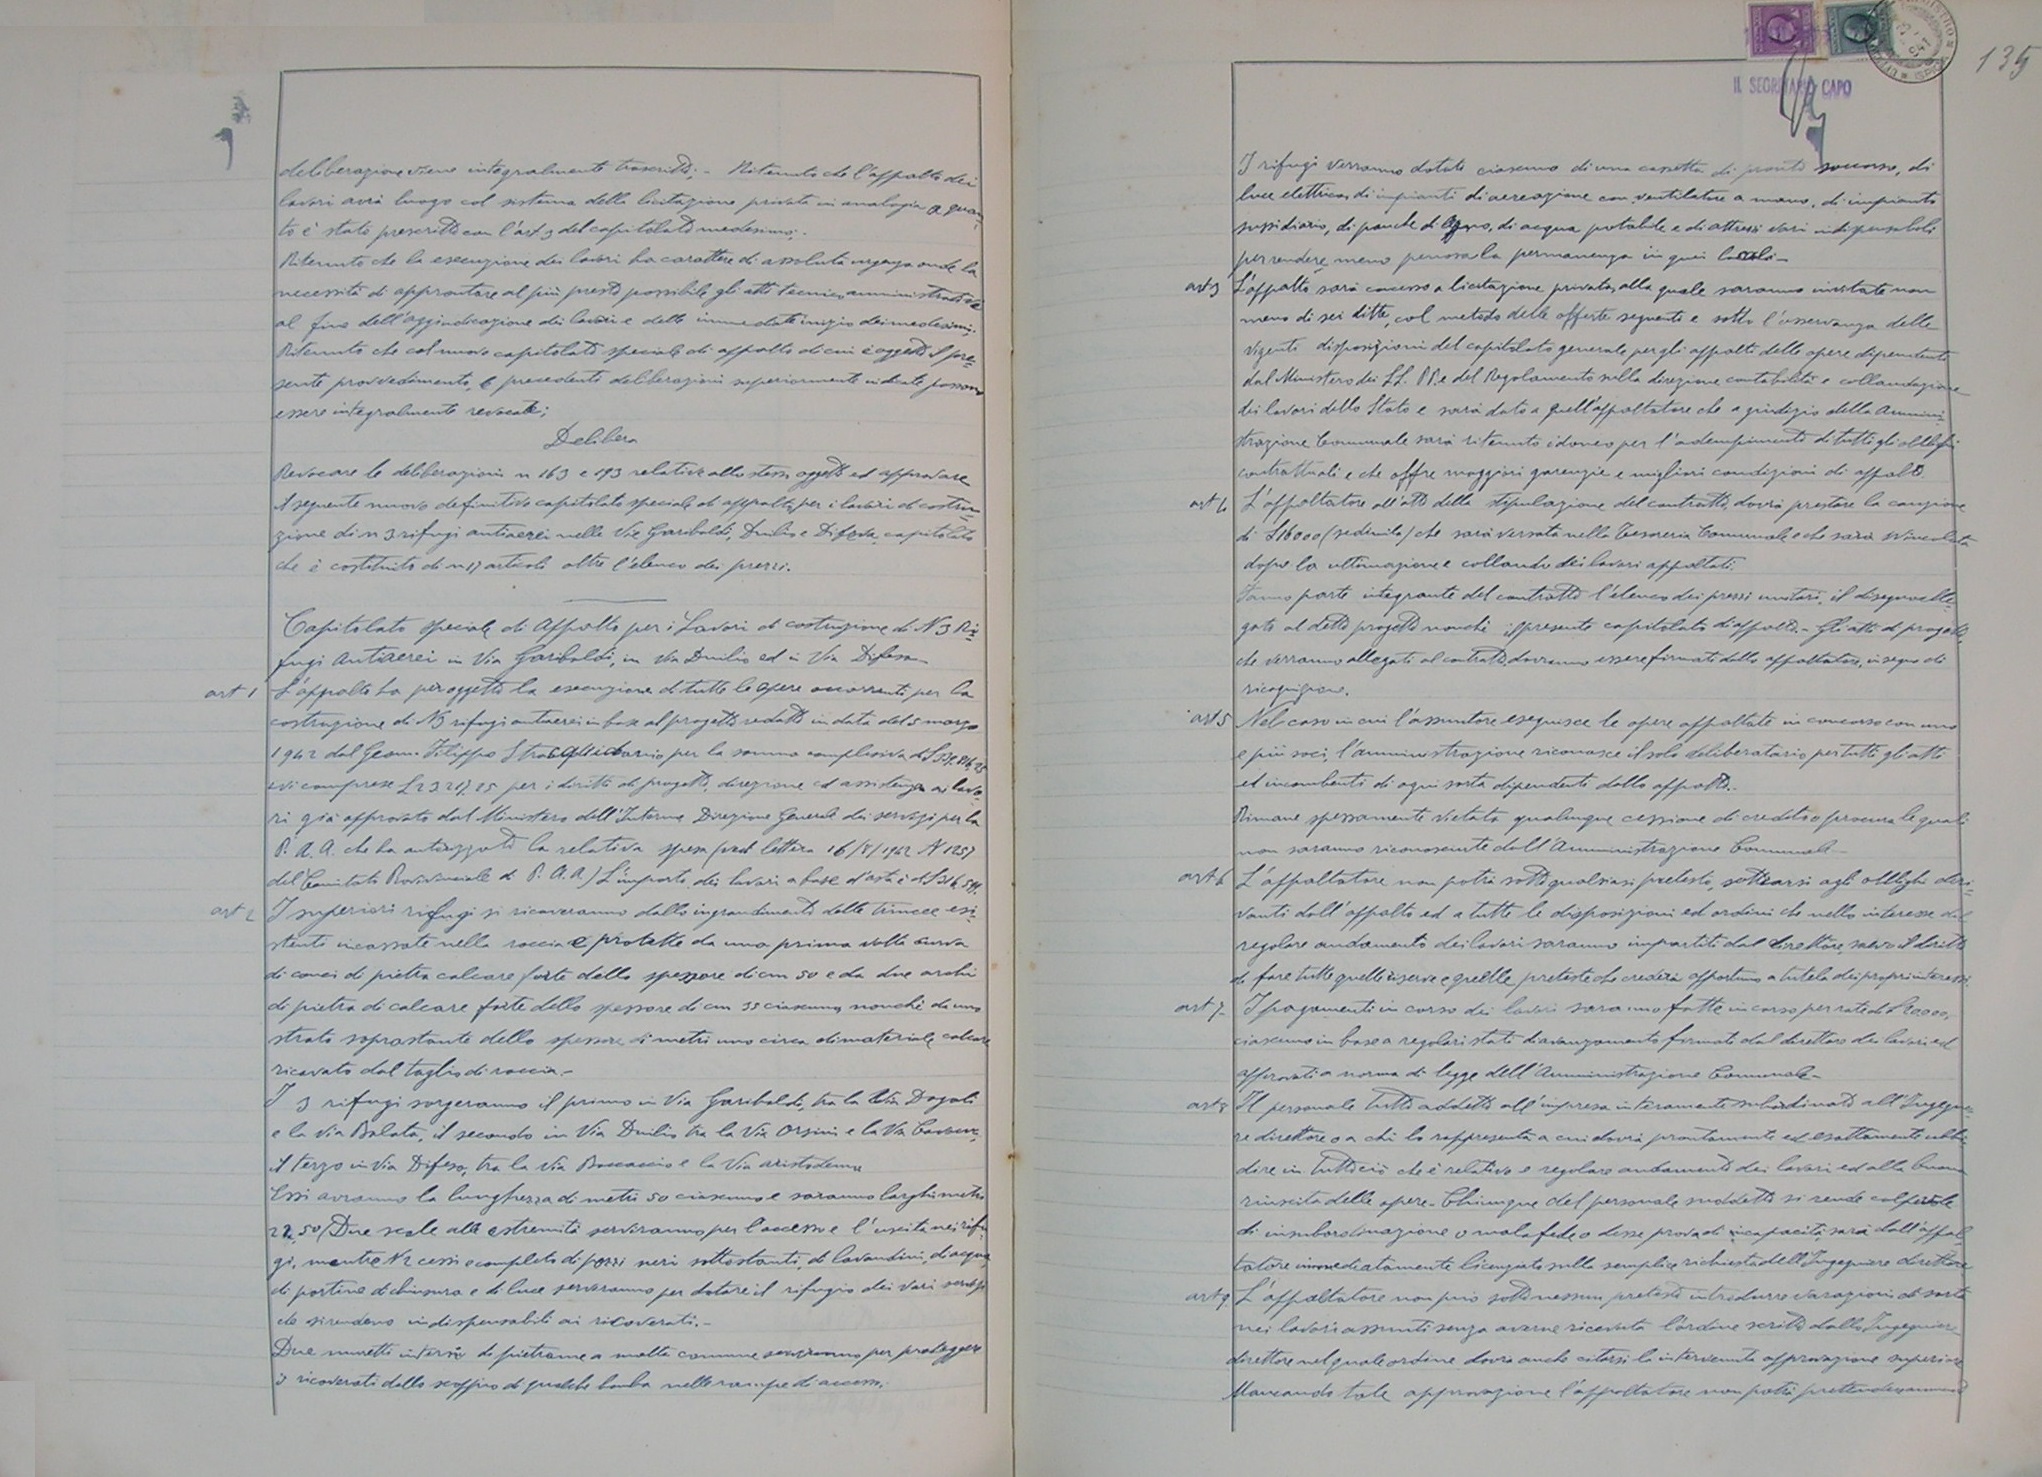 deliberazione viene integralmente trascritto; - Ritenuto che l'appalto dei
lavori avrà luogo col sistema della licitazione privata in analogia a quan
to è stato prescritto con l'art 3 del capitolato medesimo;
Ritenuto che la esecuzione dei lavori ha carattere di assoluta urgenza onde la
necessità di approntare al più presto possibile gli atti tecnico amministrativi
al fine dell'aggiudicazione dei lavori e dello immediato inizio dei medesimi;
Ritenuto che col nuovo capitolato speciale di appalto di cui è oggetto il pre=
sente provvedimento, le precedenti deliberazioni superiormente indicate possono
essere integralmente revocate;
Delibera
Revocare le deliberazioni n 163 e 193 relative allo stesso oggetto ed approvare
il seguente nuovo definitivo capitolato speciale di appalto per i lavori di costru=
zione di n 3 rifugi antiaerei nelle Vie Garibaldi, Duilio e Difesa, capitolato
che è costituito di n 17 articoli oltre l'elenco dei prezzi.
Capitolato speciale di Appalto per i Lavori di costruzione di N 3 Ri=
fugi Antiaerei in Via Garibaldi, in Via Duilio ed in Via Difesa
art 1 L'appalto ha per oggetto la esecuzione di tutte le opere occorrenti per la
costruzione di N 3 rifugi antiaerei in base al progetto redatto in data del 5 marzo
1942 dal Geom. Filippo per la somma complessiva di
ivi comprese £ 23217,25 per i diritti di progetto, direzione ed assistenza ai lavo
ri già approvato dal Ministero dell'Interno Direzione Generale dei servizi per la
P. A. A. che ha autorizzato la relativa spesa (ved. lettera 16/8/1942 N 1257
del Comitato Provinciale di P. A. A.) L'importo dei lavori a base d'asta è di
art 2 I superiori rifugi si ricaveranno dallo ingrandimento delle trincee esi=
stenti incassate nella roccia e protette da una prima volta curva
di conci di pietra calcare forte dello spessore di cm 50 e da due archi
di pietra di calcare forte dello spessore di cm 35 ciascuno, nonché da uno
strato soprastante dello spessore di metri uno circa di materiale calcare
ricavato dal taglio di roccia.-
I 3 rifugi sorgeranno il primo in Via Garibaldi, tra la Via Dogali
e la Via Balata, il secondo in Via Duilio tra la Via Orsini e la Via Cavour,
il terzo in Via Difesa, tra la Via Boccaccio e la Via Aristodemo
Essi avranno la lunghezza di metri 50 ciascuno e saranno larghi metri
2,50. Due scale alle estremità serviranno per l'accesso e l'uscita nei rifu=
gi, mentre N 2 cessi completi di pozzi neri sottostanti, di lavandini, di acqua,
di portine di chiusura e di luce serviranno per dotare il rifugio dei vari servizi
che si rendono indispensabili ai ricoverati.-
Due muretti interni di pietrame a malta comune serviranno per proteggere
i ricoverati dallo scoppio di qualche bomba nelle rampe di accesso.
135
IL SEGRETARIO CAPO
I rifugi verranno dotati ciascuno di una cassetta di pronto soccorso, di
luce elettrica, di impianti di aereazione con ventilatore a mano, di impianto
sussidiario, di panche di legno, di acqua potabile e di attrezzi vari indispensabili
per rendere meno penosa la permanenza in quei locali -
art 3 L'appalto sarà concesso a licitazione privata, alla quale saranno invitate non
meno di sei ditte, col metodo delle offerte segrete e sotto l'osservanza delle
vigenti disposizioni del capitolato generale per gli appalti delle opere dipendenti
dal Ministero dei LL. PP. e del Regolamento sulla direzione contabilità e collaudazione
dei lavori dello Stato e sarà dato a quell'appaltatore che a giudizio della Ammini=
strazione Comunale sarà ritenuto idoneo per l'adempimento di tutti gli obblighi
contrattuali e che offre maggiori garanzie e migliori condizioni di appalto.
art 4 L'appaltatore all'atto della stipulazione del contratto, dovrà prestare la cauzione
di £16000 (sedicimila) che sarà versata nella Tesoreria Comunale e che sarà svincolata
dopo la ultimazione e collaudo dei lavori appaltati.
Fanno parte integrante del contratto l'elenco dei prezzi unitari, il disegno alle=
gato al detto progetto nonché il presente capitolato d'appalto.- Gli atti di progetto
che verranno allegati al contratto, dovranno essere firmati dallo appaltatore, in segno di
ricognizione.
art 5 Nel caso in cui l'assuntore eseguisce le opere appaltate in concorso con uno
e più soci, l'amministrazione riconosce il solo deliberatario per tutti gli atti
ed incombenti di ogni sorta dipendenti dallo appalto.
Rimane espressamente vietata qualunque cessione di credito o procura le quali
non saranno riconosciute dall'Amministrazione Comunale -
art 6 L'appaltatore non potrà sotto qualsiasi pretesto, sottrarsi agli obblighi deri=
vanti dall'appalto ed a tutte le disposizioni ed ordini che nello interesse del
regolare andamento dei lavori saranno impartiti dal direttore, salvo il diritto
di fare tutte quelle riserve e quelle proteste che crederà opportuno a tutela dei propri interessi
art 7- I pagamenti in corso dei lavori saranno fatti in corso per rate di £ 20000,
ciascuno in base a regolari stati di avanzamento firmati dal direttore dei lavori ed
approvati a norma di legge dell'Amministrazione Comunale -
art 8 Il personale tutto addetto all'impresa interamente subordinato all'Ingegne=
re direttore o a chi lo rappresenta a cui dovrà prontamente ed esattamente ubbi
dire in tutto ciò che è relativo e regolare andamento dei lavori ed alla buona
riuscita delle opere - Chiunque del personale suddetto si rende colpevole
di insubordinazione o malafede o desse prova di incapacità sarà dall'appal=
tatore immediatamente licenziato sulla semplice richiesta dell'Ingegnere direttore
art 9 L'appaltatore non può sotto nessun pretesto introdurre variazioni di sorta
nei lavori assunti senza averne ricevuta l'ordine scritto dallo Ingegnere
direttore nel quale ordine dovrà anche citarsi la intervenuta approvazione superiore
Mancando tale approvazione l'appaltatore non potrà pretendere